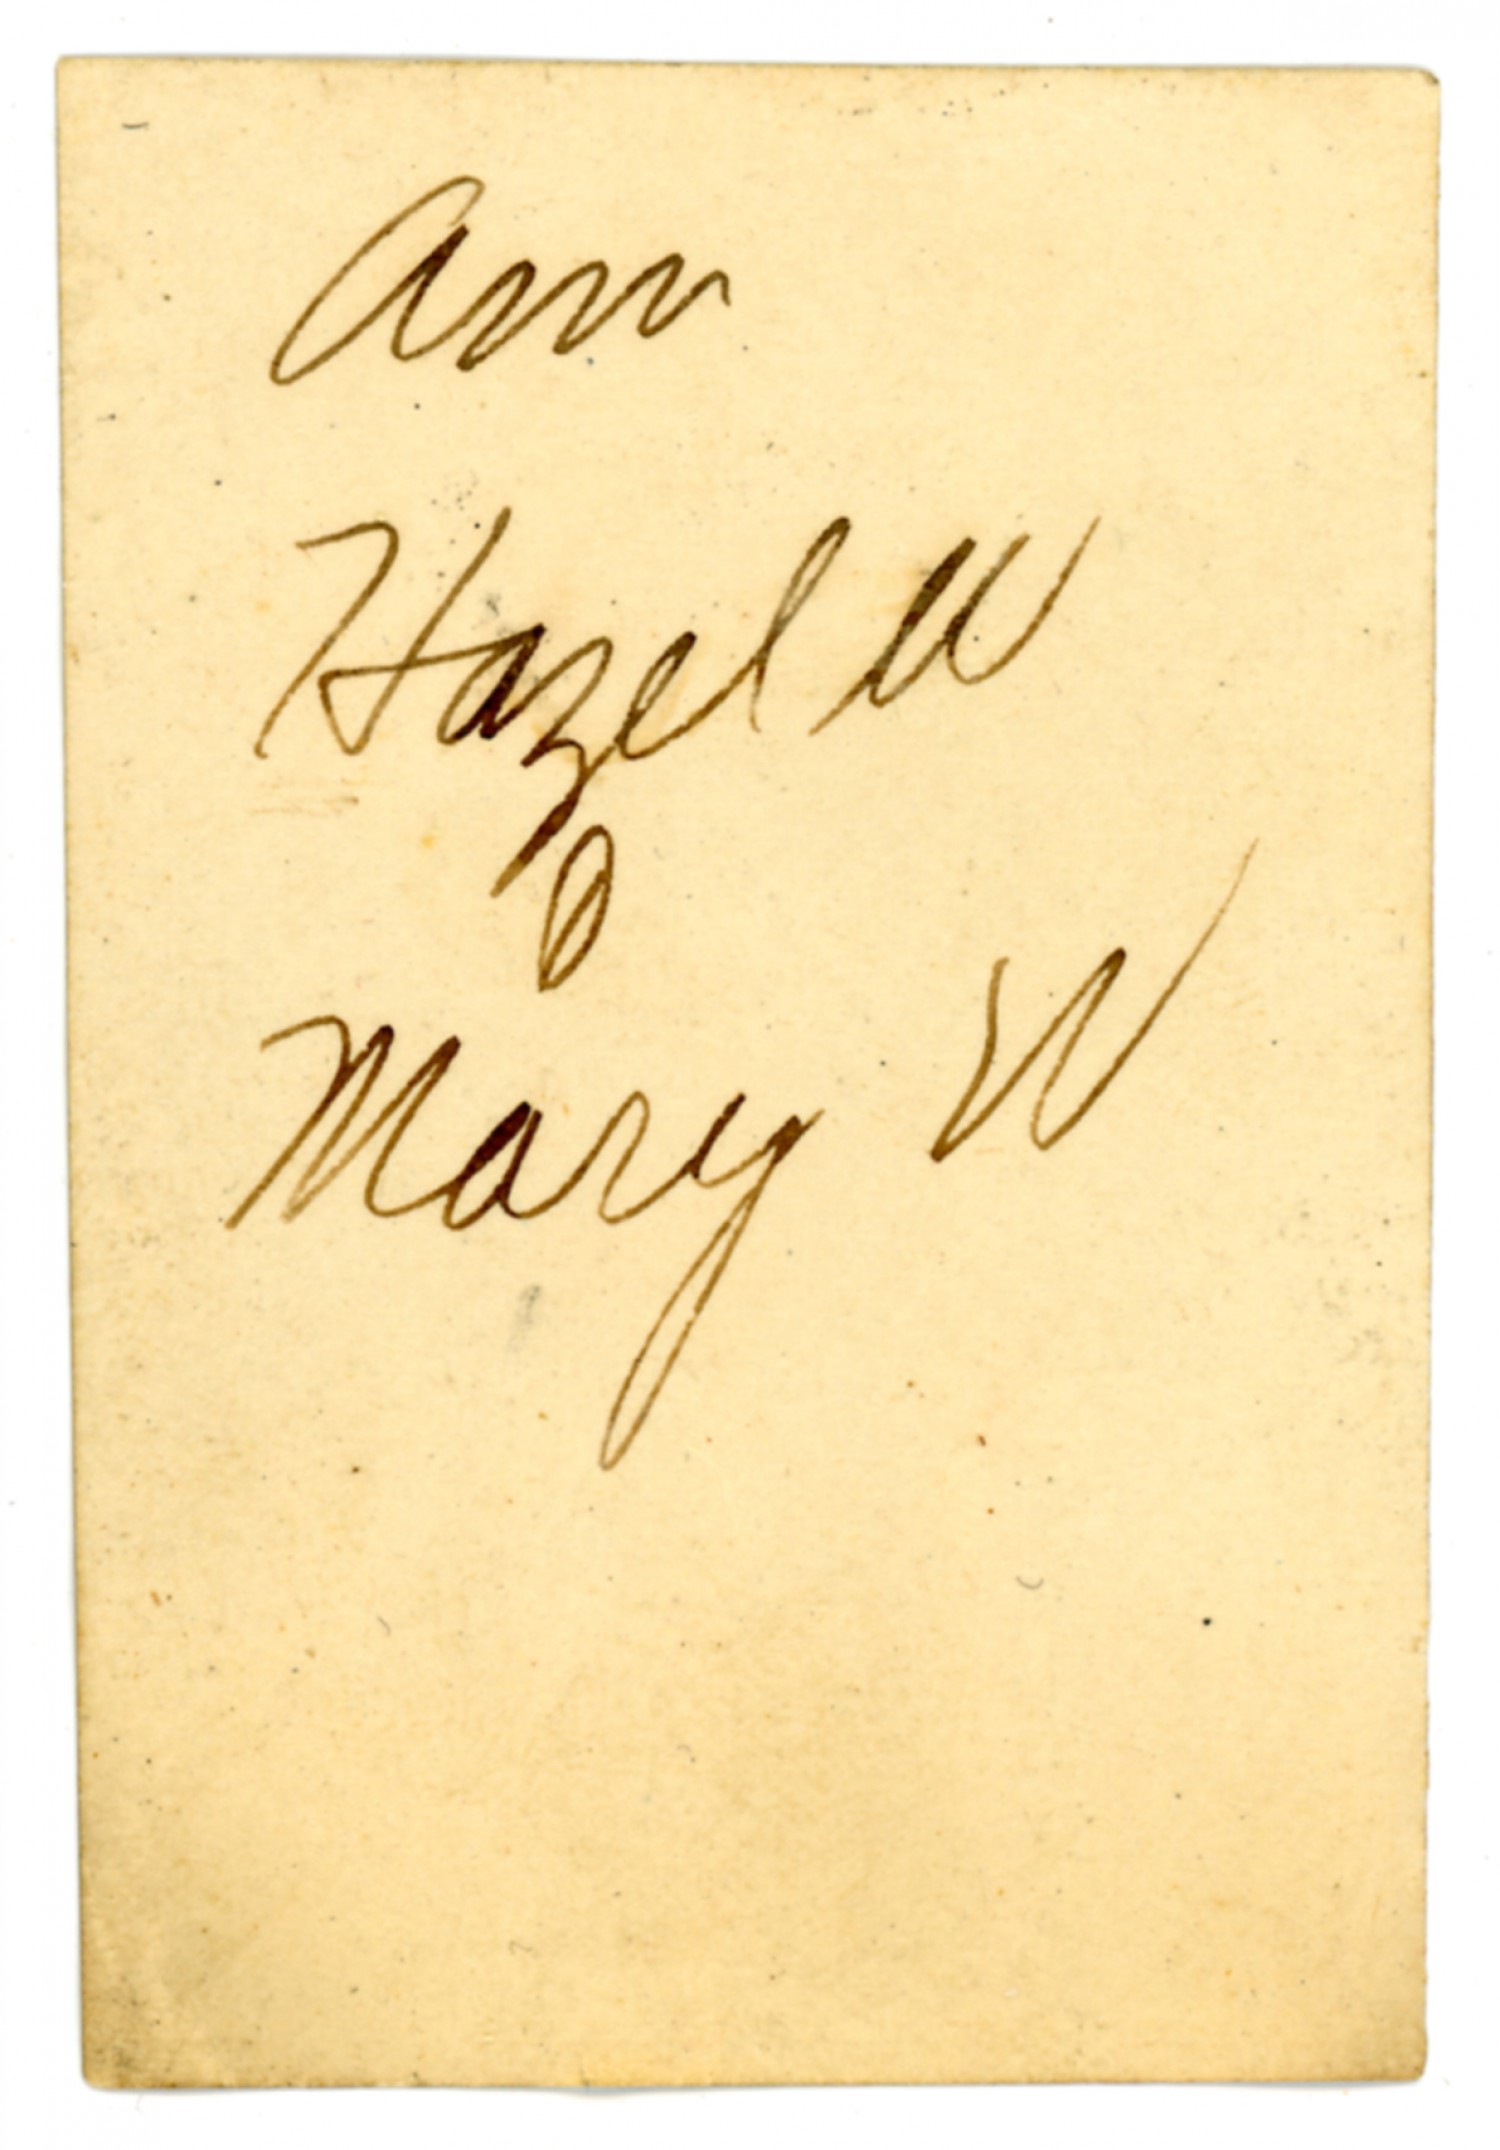 Ann
Hazel W
Mary W